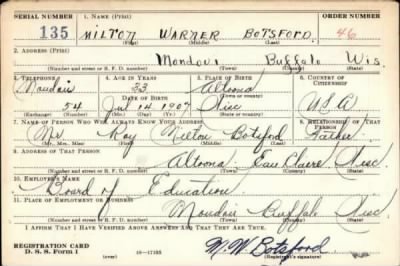 SERIAL NUMBER 1. NAME (Print) ORDER NUMBER
135 MILTON WARNER BOTSFORD 46
(First) (Middle) (Last)
2. ADDRESS (Print)
Mondovi Buffalo Wis.
(Number and street or R. F. D. number) (Town) (County) (State)
3. TELEPHONE 4. AGE IN YEARS 5. PLACE OF BIRTH 6. COUNTRY OF CITIZENSHIP
Mondovi 33 Altoona
DATE OF BIRTH (Town or county)
54 Jul 14 1907 Wisc USA
(Exchange) (Number) (Mo.) (Day) (Yr.) (State or country)
7. NAME OF PERSON WHO WILL ALWAYS KNOW YOUR ADDRESS 8. RELATIONSHIP OF THAT PERSON
Mr Roy Milton Botsford Father
(Mr., Mrs., Miss) (First) (Middle) (Last)
9. ADDRESS OF THAT PERSON
Altoona Eau Claire Wisc
(Number and street or R. F. D. number) (Town) (County) (State)
10. EMPLOYER'S NAME
Board of Education
11. PLACE OF EMPLOYMENT OR BUSINESS
Mondovi Buffalo Wisc
(Number and street or R. F. D. number) (Town) (County) (State)
I AFFIRM THAT I HAVE VERIFIED ABOVE ANSWERS AND THAT THEY ARE TRUE.
REGISTRATION CARD M. W. Botsford
D. S. S. Form 1 (over) 16—17105 (Registrant's signature)